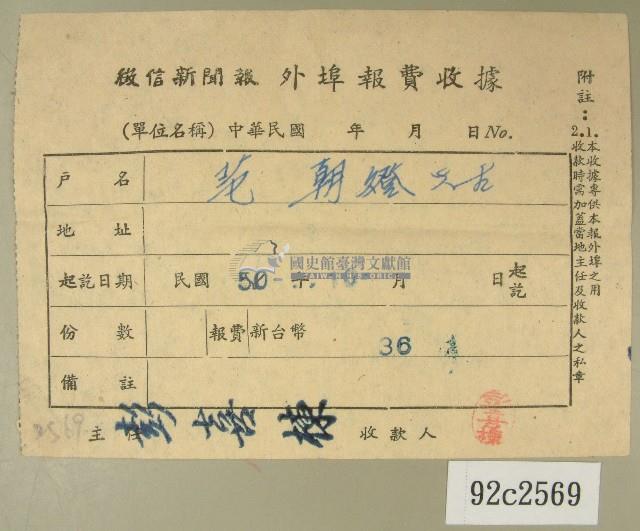 徵信新聞報 外埠報費收據
(單位名稱)中華民國 年 月 日No.
戶名 范朝燈先生
地址
起訖日期 民國 50 年 月 日 起訖
國史館臺灣文獻館
TAIWAN HISTORICA
份數 報費 新台幣 36
備註
主任 彭喜棟 收款人
附註：
1.本收據專供本報外埠之用
2.收款時需加蓋當地主任及收款人之私章
2569
92c2569